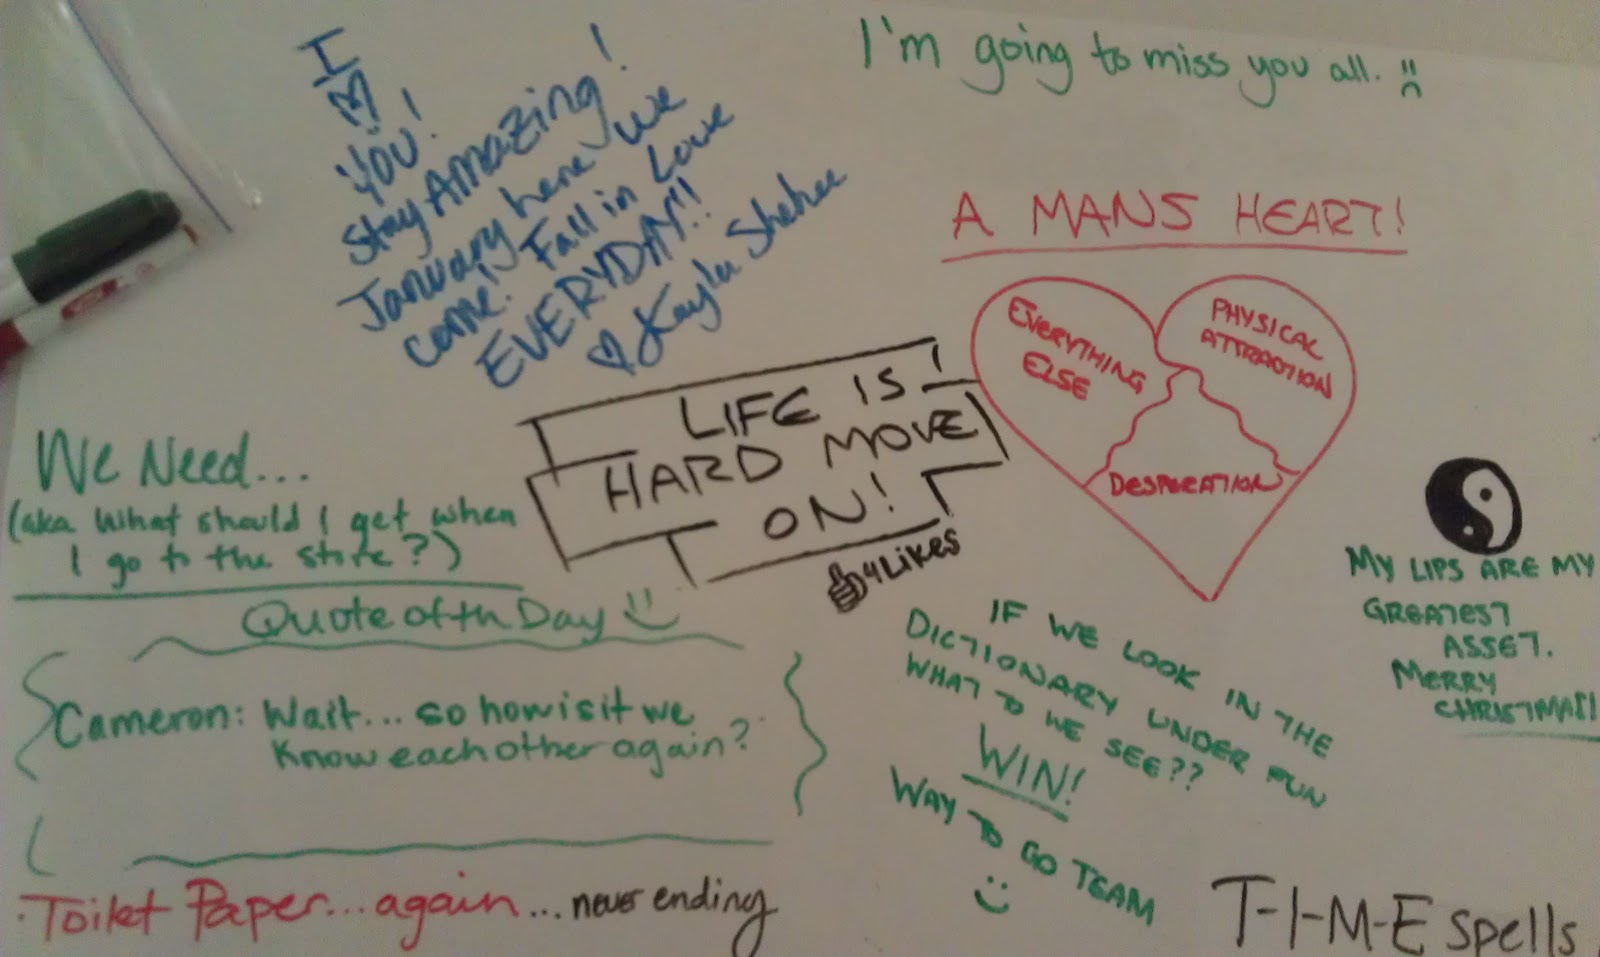 I ♡
YOU!
Stay Amazing!
January here we
come! Fall in Love
EVERYDAY!!
♡ Kayla Shehee
I'm going to miss you all. :(
A MANS HEART!
EVERYTHING
ELSE
PHYSICAL
ATTRACTION
DESPERATION
LIFE IS
HARD MOVE
ON!
4 Likes
We Need...
(aka what should I get when
I go to the store?)
Quote of th Day
Cameron: Wait... so how is it we
know each other again?
Toilet Paper...again...never ending
IF WE LOOK IN THE
DICTIONARY UNDER FUN
WHAT TO WE SEE??
WIN!
WAY TO GO TEAM
:)
MY LIPS ARE MY
GREATEST
ASSET.
MERRY
CHRISTMAS!
T-I-M-E spells